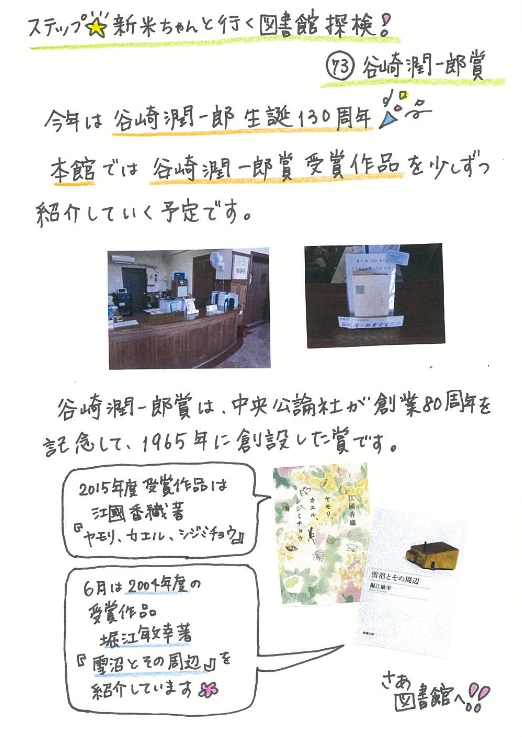 ステップ☆新米ちゃんと行く図書館探検!
73 谷崎潤一郎賞
今年は谷崎潤一郎生誕130周年
本館では谷崎潤一郎賞受賞作品を少しずつ
紹介していく予定です。
谷崎潤一郎賞は、中央公論社が創業80周年を
記念して、1965年に創設した賞です。
2015年度受賞作品は
江國香織著
『ヤモリ、カエル、シジミチョウ』
江國香織
ヤモリ、
カエル、
シジミチョウ
6月は2004年度の
受賞作品
堀江敏幸著
『雪沼とその周辺』を
紹介しています
雪沼とその周辺
堀江敏幸
さあ
図書館へ!!